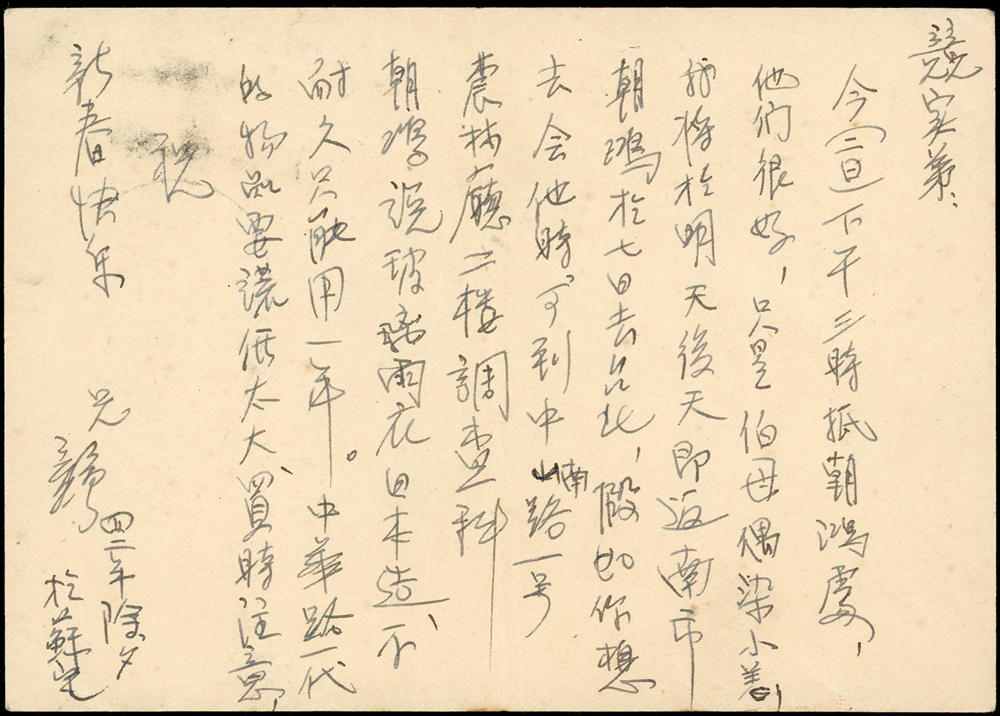 競寔弟：
今(二)日下午三時抵朝鴻處，
他們很好，只是伯母偶染小恙，
我將於明天後天即返南市
朝鴻於七日去台北，假如你想
去会他時。可到中山南路一号
農林廳二楼調查科
朝鴻説玻璃雨衣日本造不
耐久只能用一年。中華路一代
的物品要讓價太大、買時注意，
祝
新春快乐
兄
四二年除夕
於蘇宅